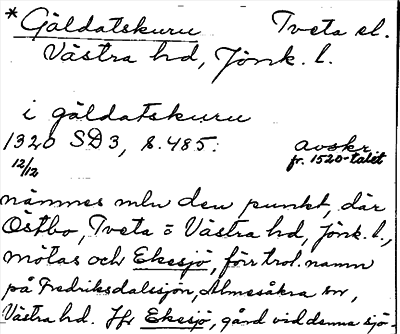 *Gäldatskuru Tveta el.
Västra hd, Jönk. l.
i gäldatskuru
1320 SD3, s. 485: avskr.
12/12 fr. 1520-talet
nämnes mlu den punkt, där
Östbo, Tveta o Västra hd, Jönk. l.,
mötas och Ekesjö, förr trol. namn
på Fredriksdalssjön, Almesåkra sn,
Västra hd. Jfr Ekesjö, gård vid denna sjö.